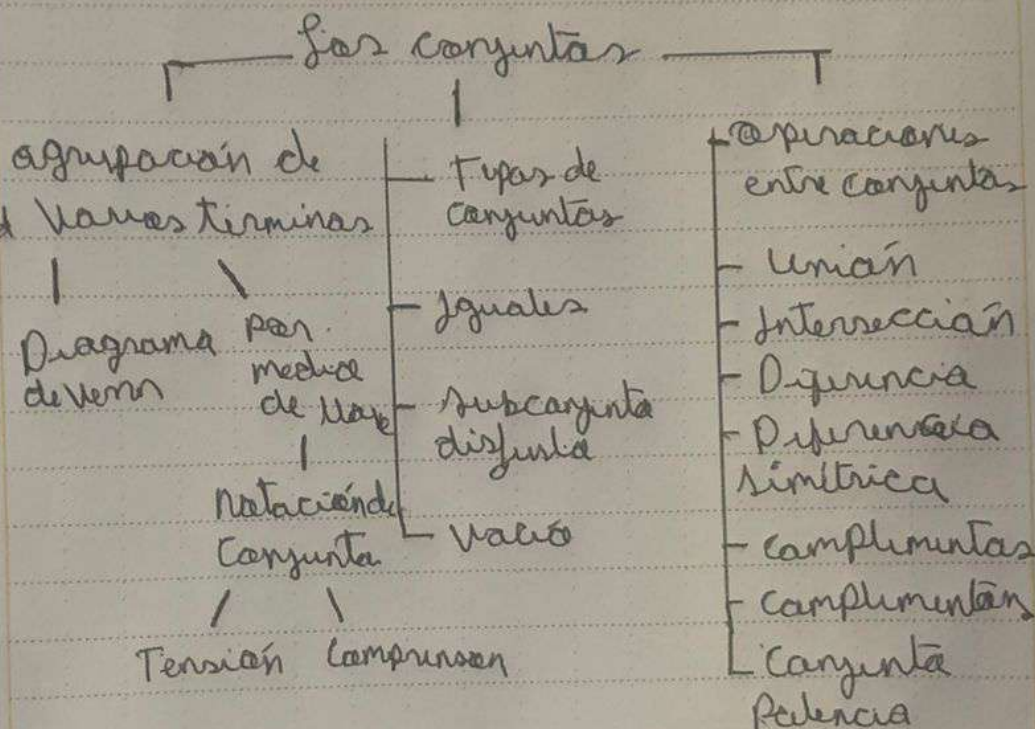 Los conjuntos
agrupación de
varios términos
Diagrama
de Venn
por
medio
de llave
notación de
Conjunto
Tensión Comprensión
Tipos de
conjuntos
Iguales
subconjunto
disjunto
vacío
operaciones
entre conjuntos
Unión
Interseccián
Diferencia
Diferencia
simétrica
complementos
Conjunto
Potencia